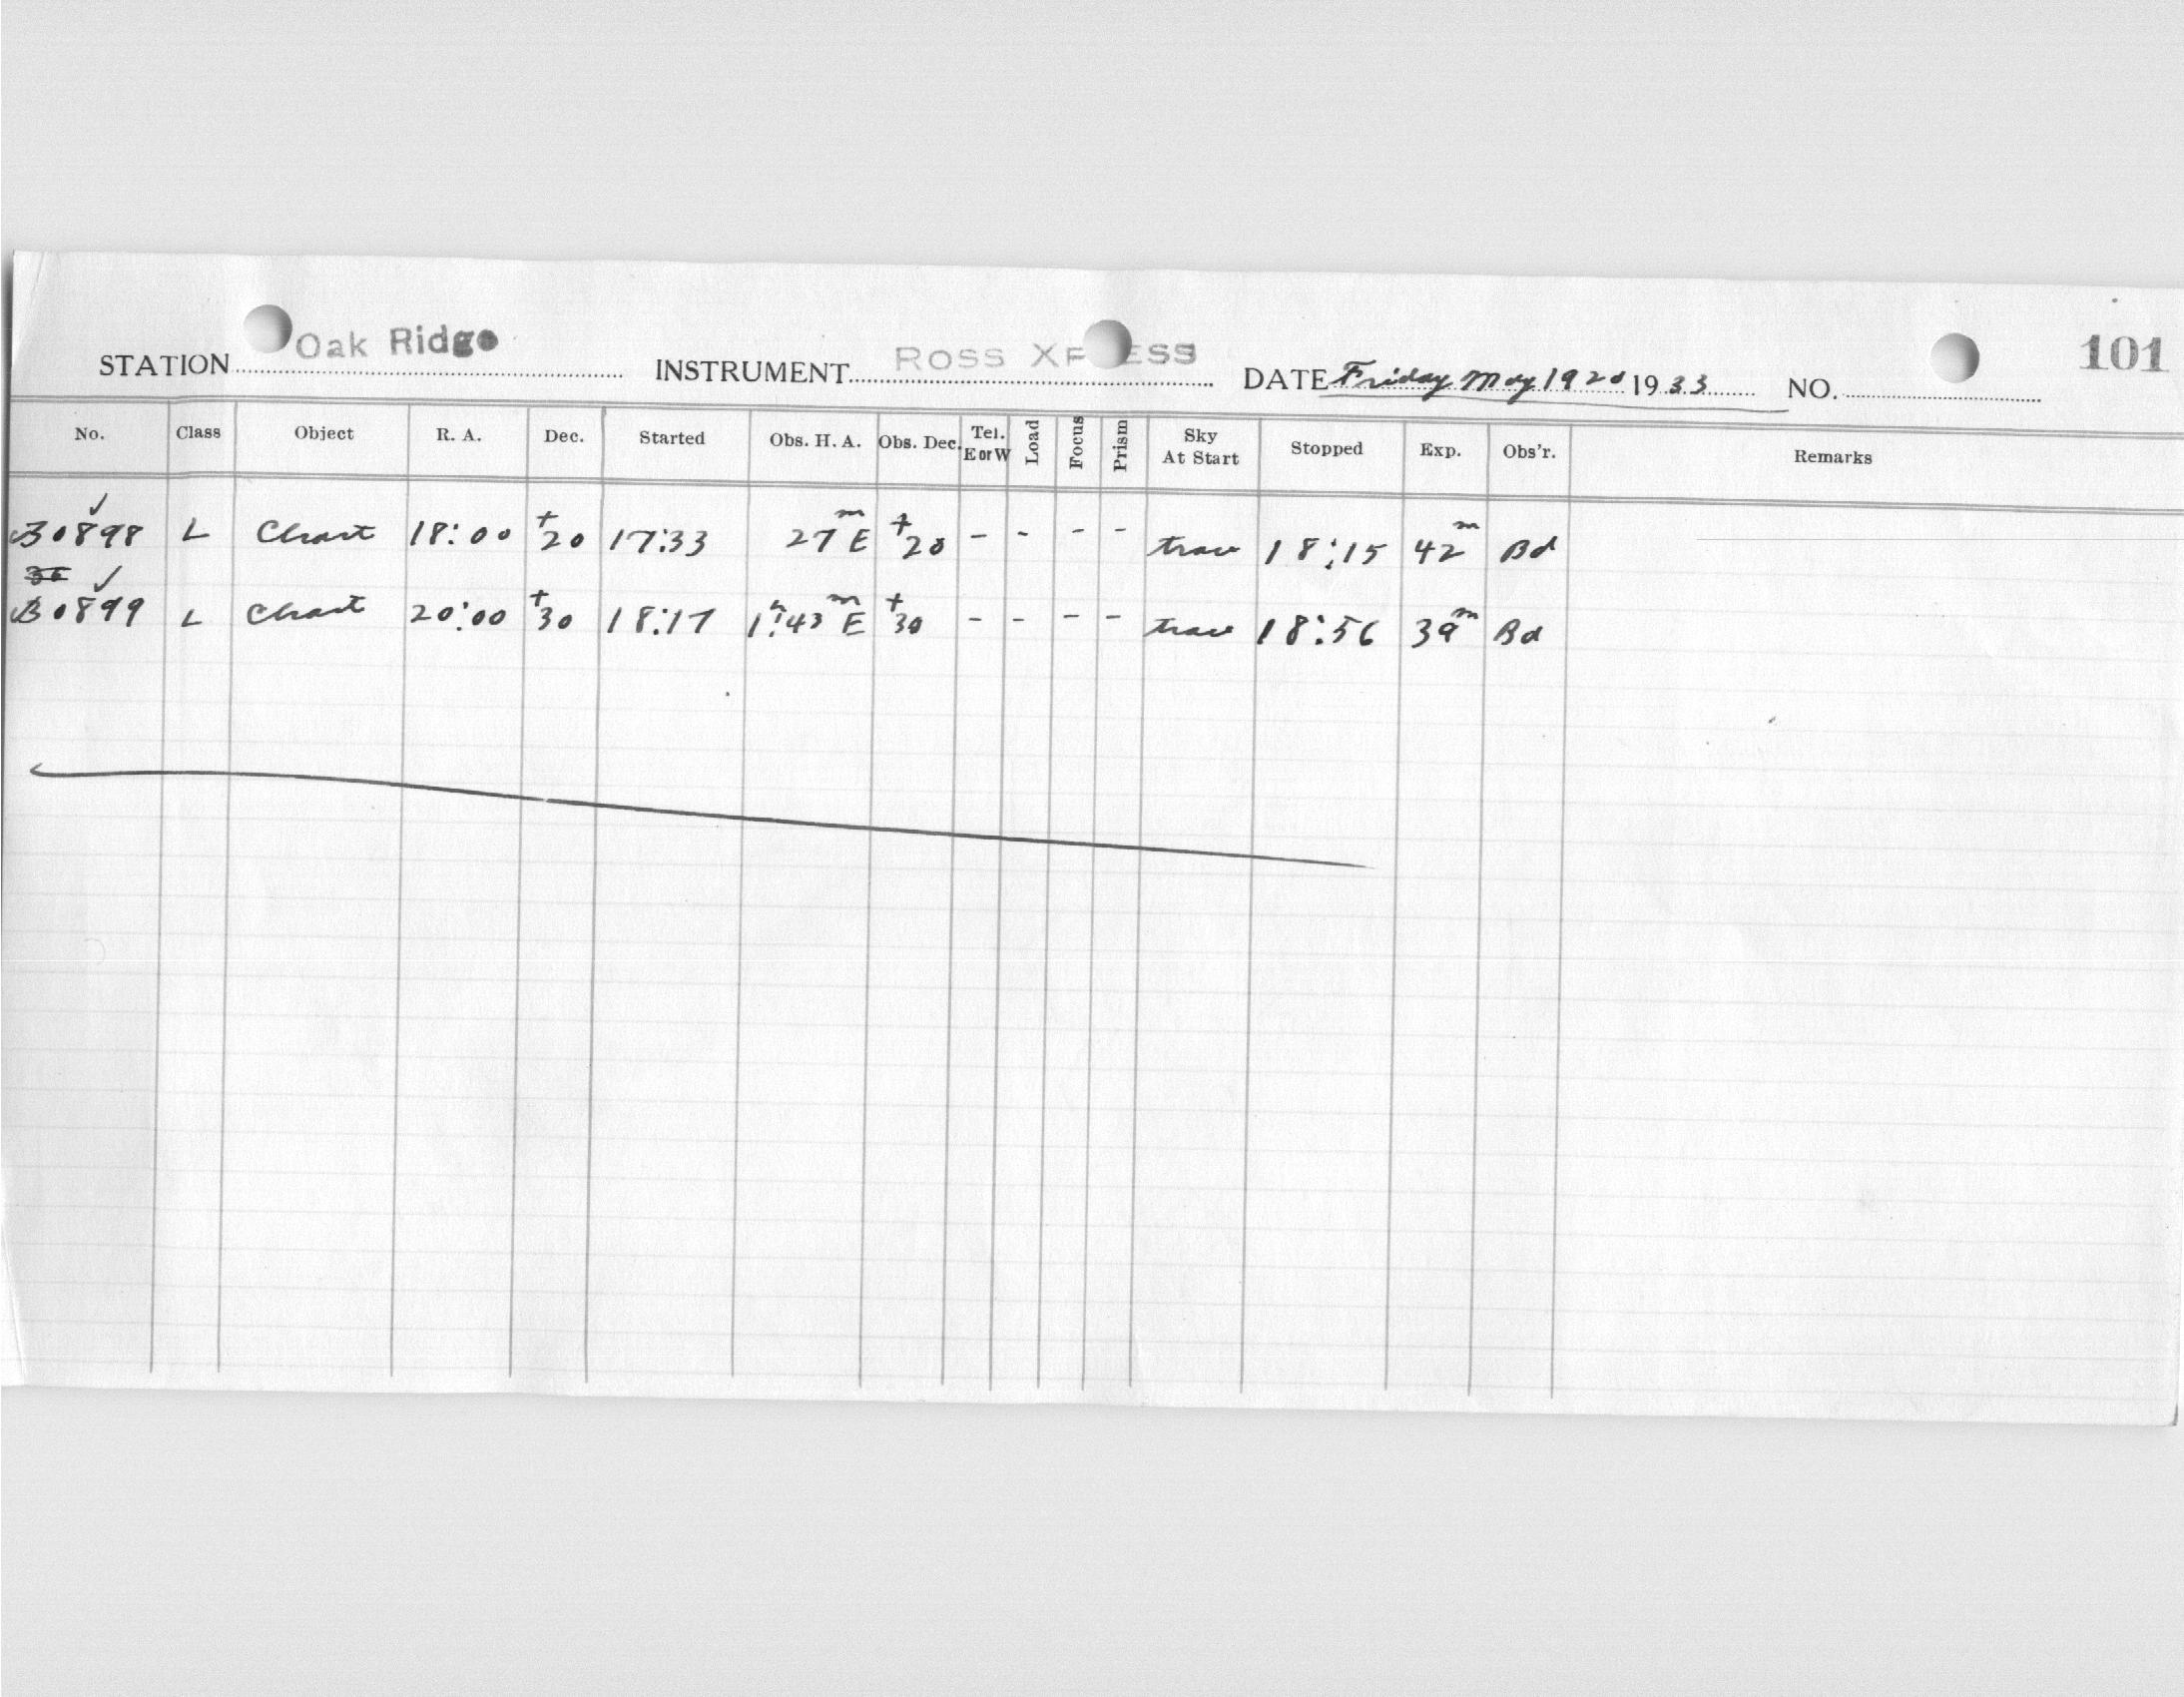 101
STATION Oak Ridge INSTRUMENT ROSS XP ESS DATE Friday May 19 20 1933 NO.
No. Class Object R. A. Dec. Started Obs. H. A. Obs. Dec. Tel. E or W Load Focus Prism Sky At Start Stopped Exp. Obs'r. Remarks
B0898 ✓ L Chart 18:00 +20 17:33 27m E +20 - - - - 18:15 42m Bd
B0899 ✓ L Chart 20:00 +30 18:17 1h:43m E +30 - - - - 18:56 39m Bd